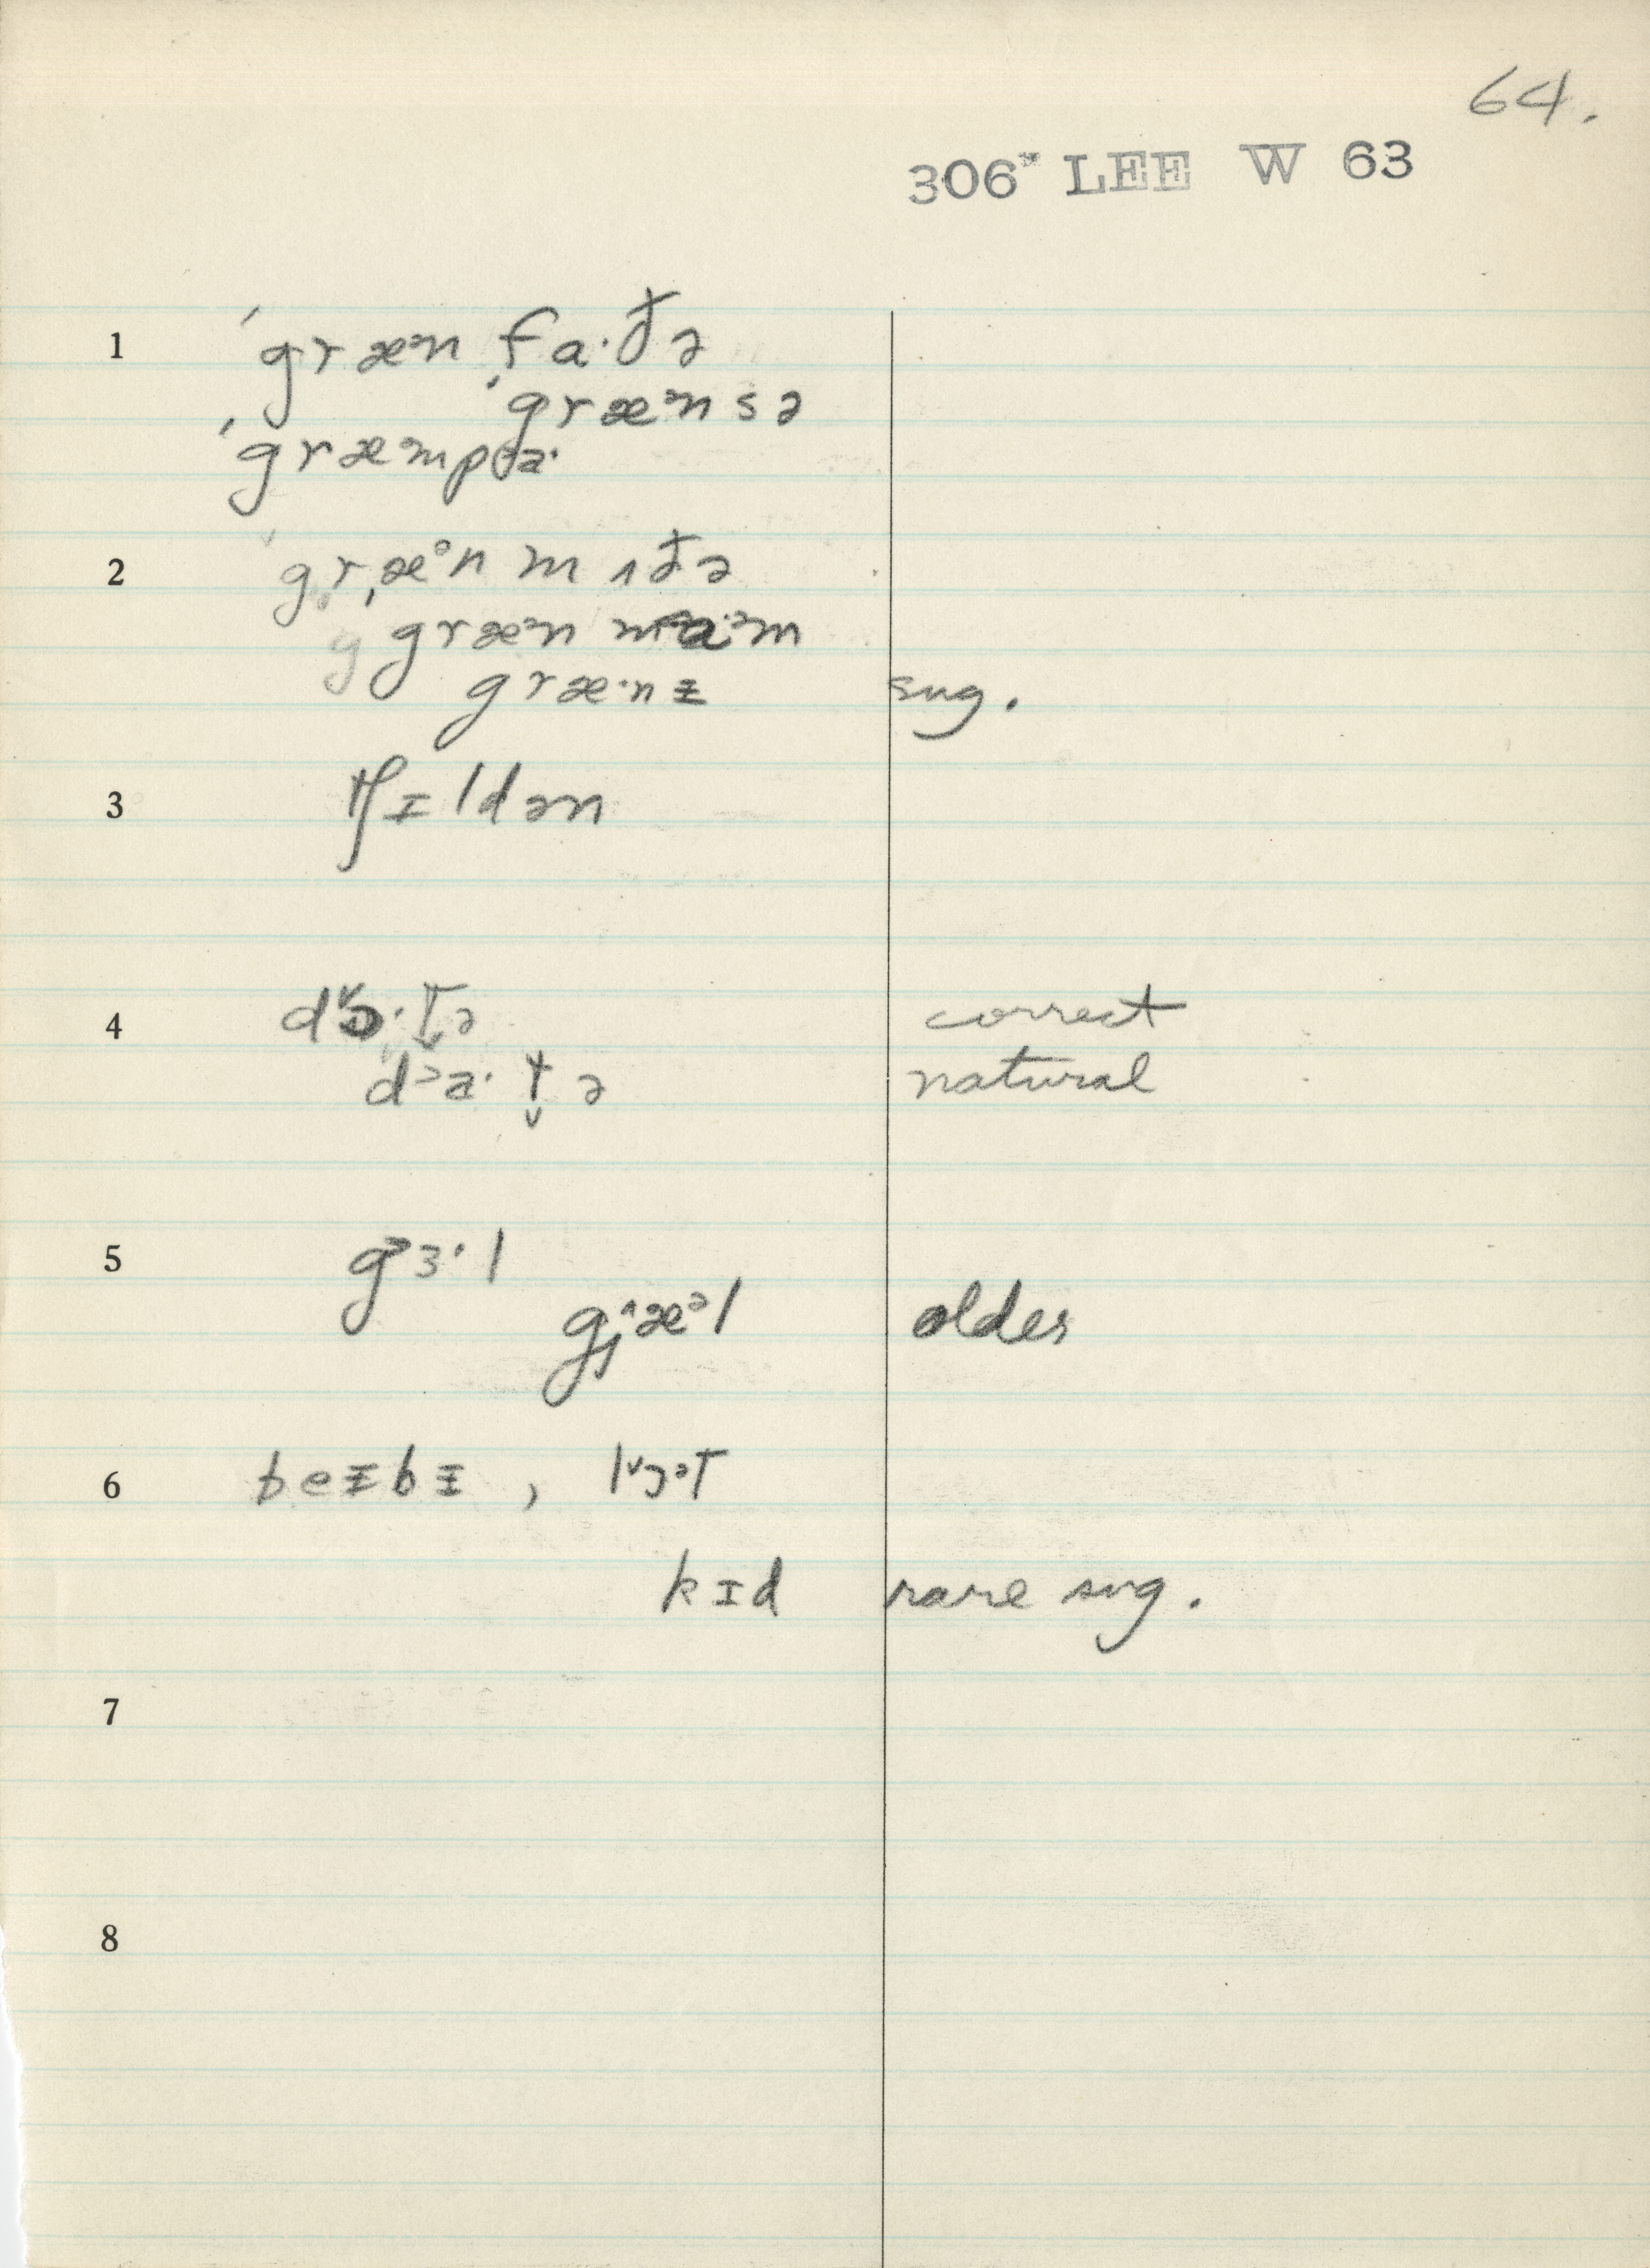 64.
306* LEE W 63
1 ˈgræᵊn ˌfa·ðə
ˈgræᵊnsə
ˈgræᵊmpa·
2 ˈgr̥æᵊn mʌðə
græᵊn ma·ᵊm
græ·nɪ̵ sug.
3 tʃɪldən
4 dɔ˅·t̬ə correct
d˃a·t̬ə natural
5 g˃ɜ·l
gj^æᵊl older
6 beɪ̵bɪ̵ , l˅ɔᵊt
kɪd rare sug.
7
8